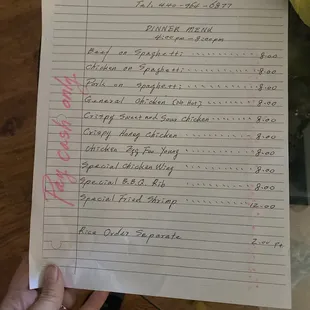 Tel. 440-466-0877
DINNER MENU
Beef on Spaghetti 8.00
Chicken on Spaghetti 8.00
Pork on Spaghetti 8.00
General Chicken (No Hot) 8.00
Crispy Sweet and Sour Chicken 8.00
Crispy Honey Chicken 8.00
Chicken Egg Foo Young 8.00
Special Chicken Wing 8.00
Special B.B.Q. Rib 8.00
Special Fried Shrimp 12.00
Rice Order Separate
Pay cash only